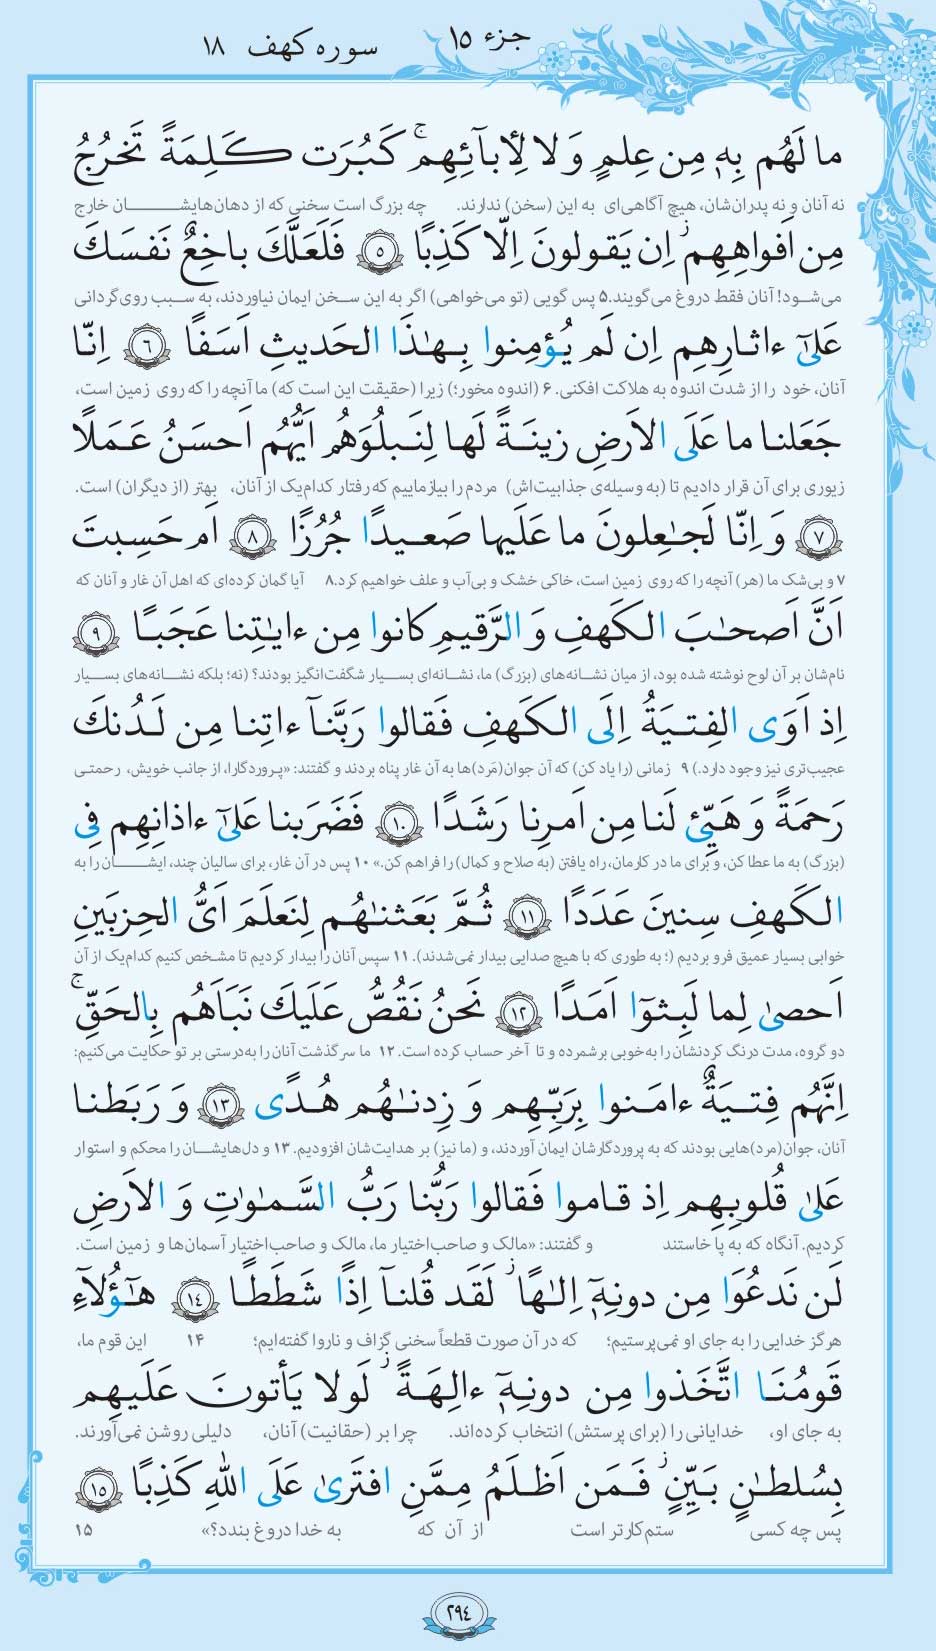 جزء ۱۵
سوره کهف ۱۸
ما لَهُم بِهٖ مِن عِلمٍ وَ لا لِأبآئِهِم ۚ كَبُرَت كَلِمَةً تَخرُجُ
نه آنان و نه پدران‌شان، هیچ آگاهی‌ای به این (سخن) ندارند. چه بزرگ است سخنی که از دهان‌هایشـــان خارج
مِن اَفواهِهِم ۚ اِن يَقولونَ اِلّا كَذِبًا ﴿٥﴾ فَلَعَلَّكَ باخِعٌ نَفسَكَ
می‌شود! آنان فقط دروغ می‌گویند.۵ پس گویی (تو می‌خواهی) اگر به این سـخن ایمان نیاوردند، به سـبب روی‌گردانی
عَلىٰٓ ءاثارِهِم اِن لَم يُؤمِنوا بِهـٰذَا الحَديثِ اَسَفًا ﴿٦﴾ اِنّا
آنان، خود را از شدت اندوه به هلاکت افکنی. ۶ (اندوه مخور؛) زیرا (حقیقت این است که) ما آنچه را که روی زمین است،
جَعَلنا ما عَلَى الاَرضِ زينَةً لَها لِنَبلُوَهُم اَيُّهُم اَحسَنُ عَمَلًا
زیوری برای آن قرار دادیم تا (به وسیله‌ی جذابیت‌اش) مردم را بیازماییم که رفتار کدام‌یک از آنان، بهتر (از دیگران) است.
﴿٧﴾ وَ اِنّا لَجـٰعِلونَ ما عَلَيها صَعيدًا جُرُزًا ﴿٨﴾ اَم حَسِبتَ
۷ و بی‌شک ما (هر) آنچه را که روی زمین است، خاکی خشک و بی‌آب و علف خواهیم کرد.۸ آیا گمان کرده‌ای که اهل آن غار و آنان که
اَنَّ اَصحـٰبَ الكَهفِ وَ الرَّقيمِ كانوا مِن ءايـٰتِنا عَجَبًا ﴿٩﴾
نام‌شان بر آن لوح نوشته شده بود، از میان نشـانه‌های (بزرگ) ما، نشـانه‌ای بسـیار شگفت‌انگیز بودند؟ (نه؛ بلکه نشـانه‌های بسـیار
اِذ اَوَى الفِتيَةُ اِلَى الكَهفِ فَقالوا رَبَّنآ ءاتِنا مِن لَدُنكَ
عجیب‌تری نیز وجود دارد.) ۹ زمانی (را یاد کن) که آن جوان(مَرد)ها به آن غار پناه بردند و گفتند: «پروردگارا، از جانب خویش، رحمتی
رَحمَةً وَ هَيِّئ لَنا مِن اَمرِنا رَشَدًا ﴿١٠﴾ فَضَرَبنا عَلىٰٓ ءاذانِهِم فِى
(بزرگ) به ما عطا کن، و برای ما در کارمان، راه یافتن (به صلاح و کمال) را فراهم کن.» ۱۰ پس در آن غار، برای سالیان چند، ایشـــان را به
الكَهفِ سِنينَ عَدَدًا ﴿١١﴾ ثُمَّ بَعَثنـٰهُم لِنَعلَمَ اَىُّ الحِزبَينِ
خوابی بسیار عمیق فرو بردیم (؛ به طوری که با هیچ صدایی بیدار نمی‌شدند). ۱۱ سپس آنان را بیدار کردیم تا مشخص کنیم کدام‌یک از آن
اَحصىٰ لِما لَبِثوٓا اَمَدًا ﴿١٢﴾ نَحنُ نَقُصُّ عَلَيكَ نَبَاَهُم بِالحَقِّ ۚ
دو گروه، مدت درنگ کردنشان را به‌خوبی برشمرده و تا آخر حساب کرده است. ۱۲ ما سرگذشت آنان را به‌درستی بر تو حکایت می‌کنیم:
اِنَّهُم فِتيَةٌ ءامَنوا بِرَبِّهِم وَ زِدنـٰهُم هُدًى ﴿١٣﴾ وَ رَبَطنا
آنان، جوان(مرد)هایی بودند که به پروردگارشان ایمان آوردند، و (ما نیز) بر هدایت‌شان افزودیم. ۱۳ و دل‌هایشـان را محکم و استوار
عَلىٰ قُلوبِهِم اِذ قاموا فَقالوا رَبُّنا رَبُّ السَّمـٰوٰتِ وَ الاَرضِ
کردیم. آنگاه که به پا خاستند و گفتند: «مالک و صاحب‌اختیار ما، مالک و صاحب‌اختیار آسمان‌ها و زمین است.
لَن نَدعُوَا مِن دونِهٖٓ اِلـٰهًا ۖ لَقَد قُلنآ اِذًا شَطَطًا ﴿١٤﴾ هـٰٓؤُلآءِ
هرگز خدایی را به جای او نمی‌پرستیم؛ که در آن صورت قطعاً سخنی گزاف و ناروا گفته‌ایم؛ ۱۴ این قوم ما،
قَومُنَا اتَّخَذوا مِن دونِهٖٓ ءالِهَةً ۖ لَولا يَأتونَ عَلَيهِم
به جای او، خدایانی را (برای پرستش) انتخاب کرده‌اند. چرا بر (حقانیت) آنان، دلیلی روشن نمی‌آورند.
بِسُلطـٰنٍ بَيِّنٍ ۖ فَمَن اَظلَمُ مِمَّنِ افتَرىٰ عَلَى اللهِ كَذِبًا ﴿١٥﴾
پس چه کسی ستم‌کارتر است از آن که به خدا دروغ بندد؟» ۱۵
٢٩٤